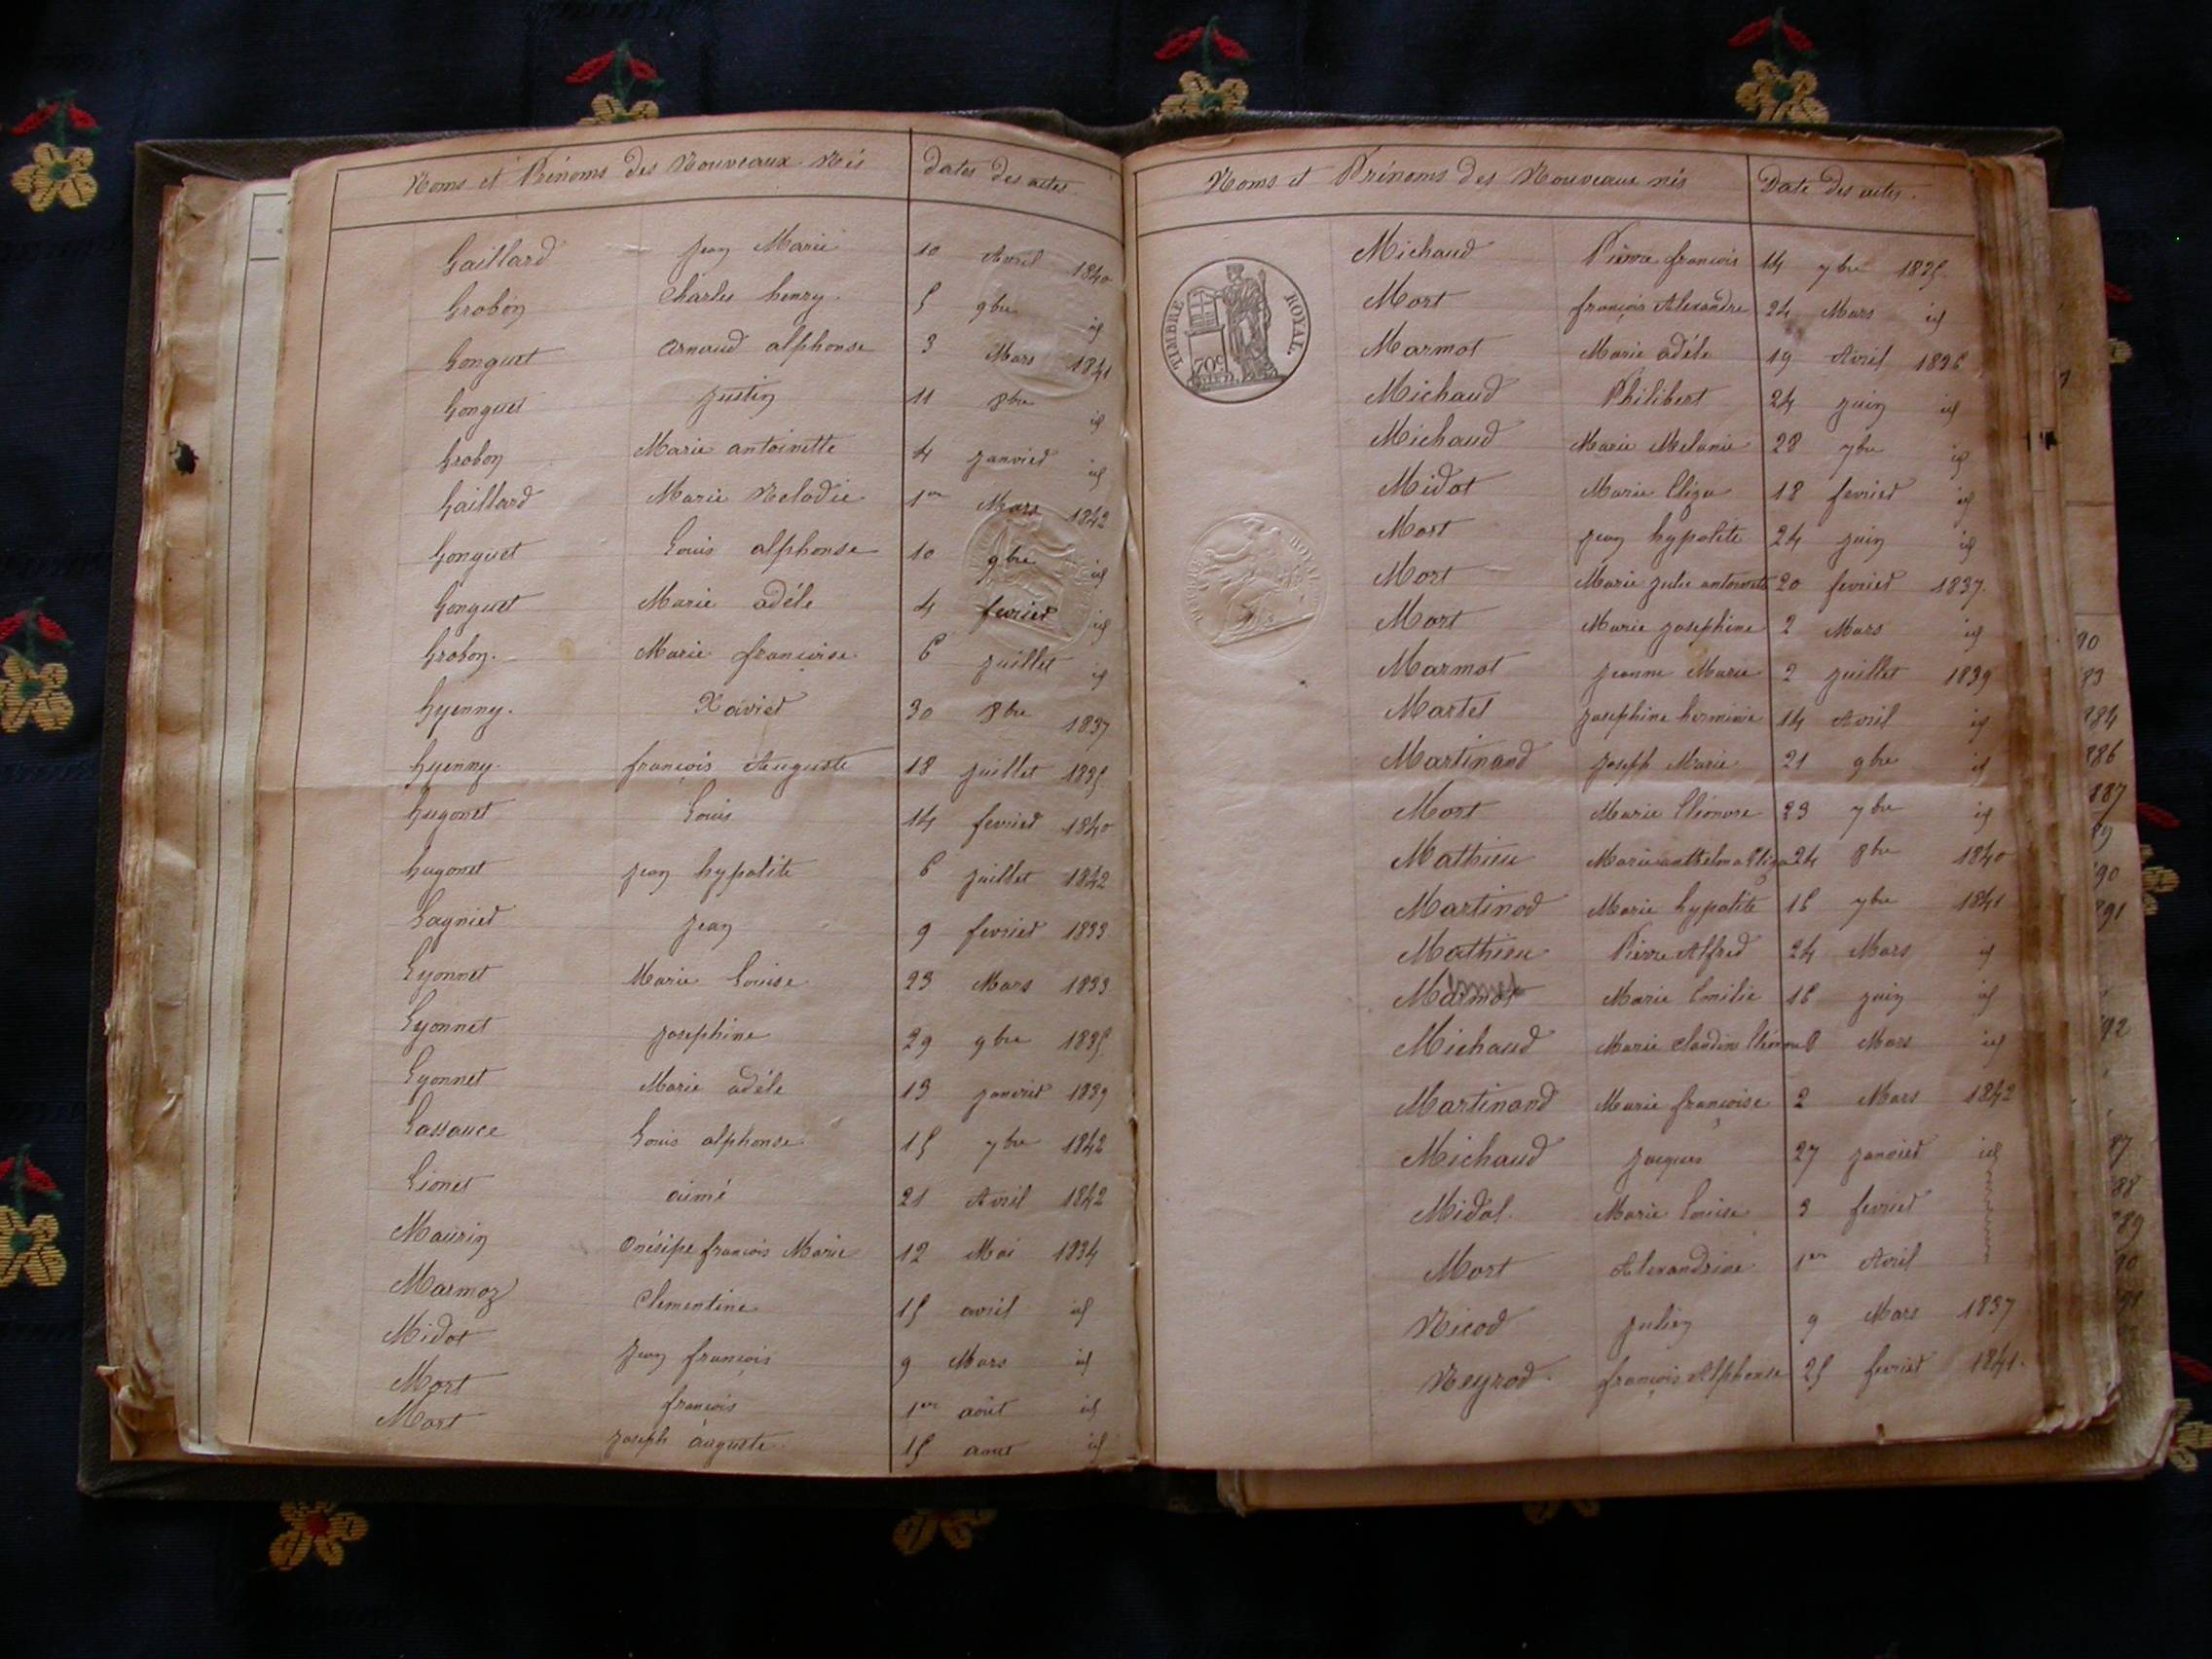 Noms et Prénoms des Nouveaux Nés dates des actes
Gaillard Jean Marie 10 Avril 1840
Grobon Charles henry 5 9bre id
Gonguet Arnaud alphonse 3 Mars 1841
Gonguet Justin 11 8bre id
Grobon Marie antoinette 4 Janvier id
Gaillard Marie Melodie 1er Mars 1842
Gonguet Louis alphonse 10 9bre id
Gonguet Marie adéle 4 fevrier id
Grobon. Marie françoise 6 Juillet id
hyenny. Xavier 30 8bre 1837
hyenny. françois Auguste 18 Juillet 1835
hugonet Louis 14 fevrier 1840
hugonet Jean hypolite 6 Juillet 1842
Lagnier Jean 9 fevrier 1833
Lyonnet Marie Louise 23 Mars 1833
Lyonnet Josephine 29 9bre 1835
Lyonnet Marie adéle 13 Janvier 1839
Lassauce Louis alphonse 15 7bre 1842
Lionet aimé 21 Avril 1842
Maurin Onésipe françois Marie 12 Mai 1834
Marmoz Clementine 15 avril id
Midot Jean françois 9 Mars id
Mort françois 1er août id
Mort Joseph auguste 15 aout id
Noms et Prénoms des Nouveaux nés Date des actes.
TIMBRE ROYAL.
70c
Michaud Pierre françois 14 7bre 1835
Mort françois Alexandre 24 Mars id
Marmot Marie adéle 19 Avril 1836
Michaud Philibert 24 Juin id
Michaud Marie Melanie 28 7bre id
Midot Marie Eliza 18 fevrier id
Mort Jean hypolite 24 Juin id
Mort Marie Julie antoinette 20 fevrier 1837.
Mort Marie Josephine 2 Mars id
Marmot Jeanne Marie 2 Juillet 1839
Martel Josephine herminie 14 Avril id
Martinand Joseph Marie 21 9bre id
Mort Marie Eléonore 23 7bre id
Mathieu Marie anthelma Eliza 24 8bre 1840
Martinod Marie hypolite 16 7bre 1841
Mathieu Pierre Alfred 24 Mars id
Marmot Marie Emilie 16 Juin id
Michaud Marie Claudine Mars id
Martinand Marie françoise 2 Mars 1842
Michaud Jacques 27 Janvier id
Midol. Marie Louise 3 fevrier
Mort Alexandrine 1er Avril
Nicod Julien 9 Mars 1837
Neyrod. françois Alphonse 25 fevrier 1841.